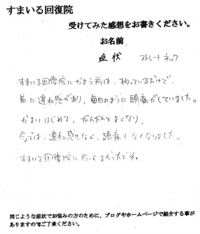 すまいる回復院
受けてみた感想をお書きください。
お名前
症状 ストレートネック
すまいる回復院にかよう前は、ねているだけで
首に違和感があり、毎日のように頭痛がしていました。
かよいはじめて、だんだんとよくなり、
今では、違和感もなく、頭痛もなくなりました。
すまいる回復院に行ってよかったです。
同じような症状でお悩みの方のために、ブログやホームページで紹介する事が
ありますので予めご了承ください。